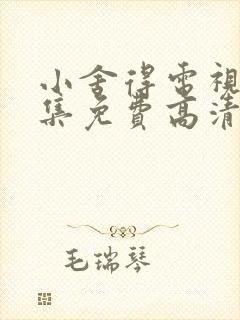 小舍得電視
集免費高清
毛瑞琴